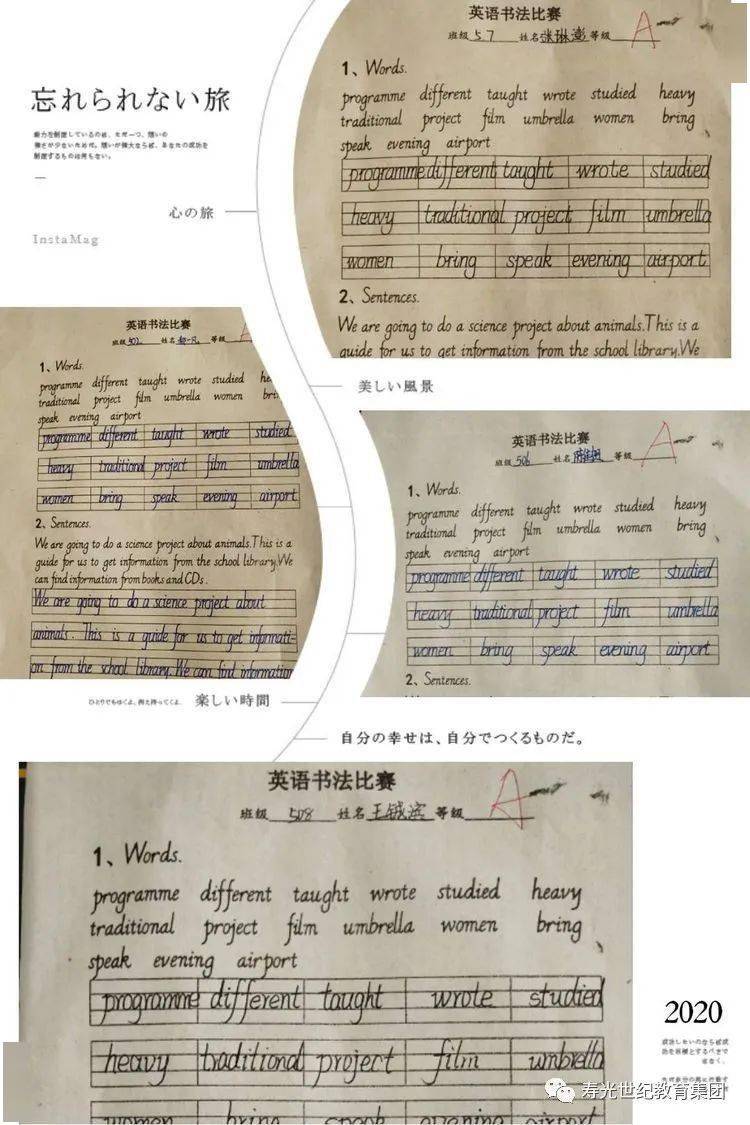 忘れられない旅
心の旅
InstaMag
英语书法比赛
班级 57 姓名 张琳澎 等级 A
1、Words.
programme different taught wrote studied heavy
traditional project film umbrella women bring
speak evening airport
programme different taught wrote studied
heavy traditional project film umbrella
women bring speak evening airport
2、Sentences.
We are going to do a science project about animals.This is a
guide for us to get information from the school library.We
美しい風景
英语书法比赛
班级 502 姓名 等级 A
1、Words.
programme different taught wrote studied
traditional project film umbrella women
speak evening airport
programme different taught wrote studied
heavy traditional project film umbrella
women bring speak evening airport
2、Sentences.
We are going to do a science project about animals.This is a
guide for us to get information from the school library.We
can find information from books and CDs.
We are going to do a science project about
animals. This is a guide for us to get informati-
on from the school library. We can find information
英语书法比赛
班级 506 姓名 等级 A
1、Words.
programme different taught wrote studied heavy
traditional project film umbrella women bring
speak evening airport
programme different taught wrote studied
heavy traditional project film umbrella
women bring speak evening airport
2、Sentences.
楽しい時間
自分の幸せは、自分でつくるものだ。
英语书法比赛
班级 508 姓名 等级 A
1、Words.
programme different taught wrote studied heavy
traditional project film umbrella women bring
speak evening airport
programme different taught wrote studied
heavy traditional project film umbrella
women bring speak evening airport
2020
寿光世纪教育集团